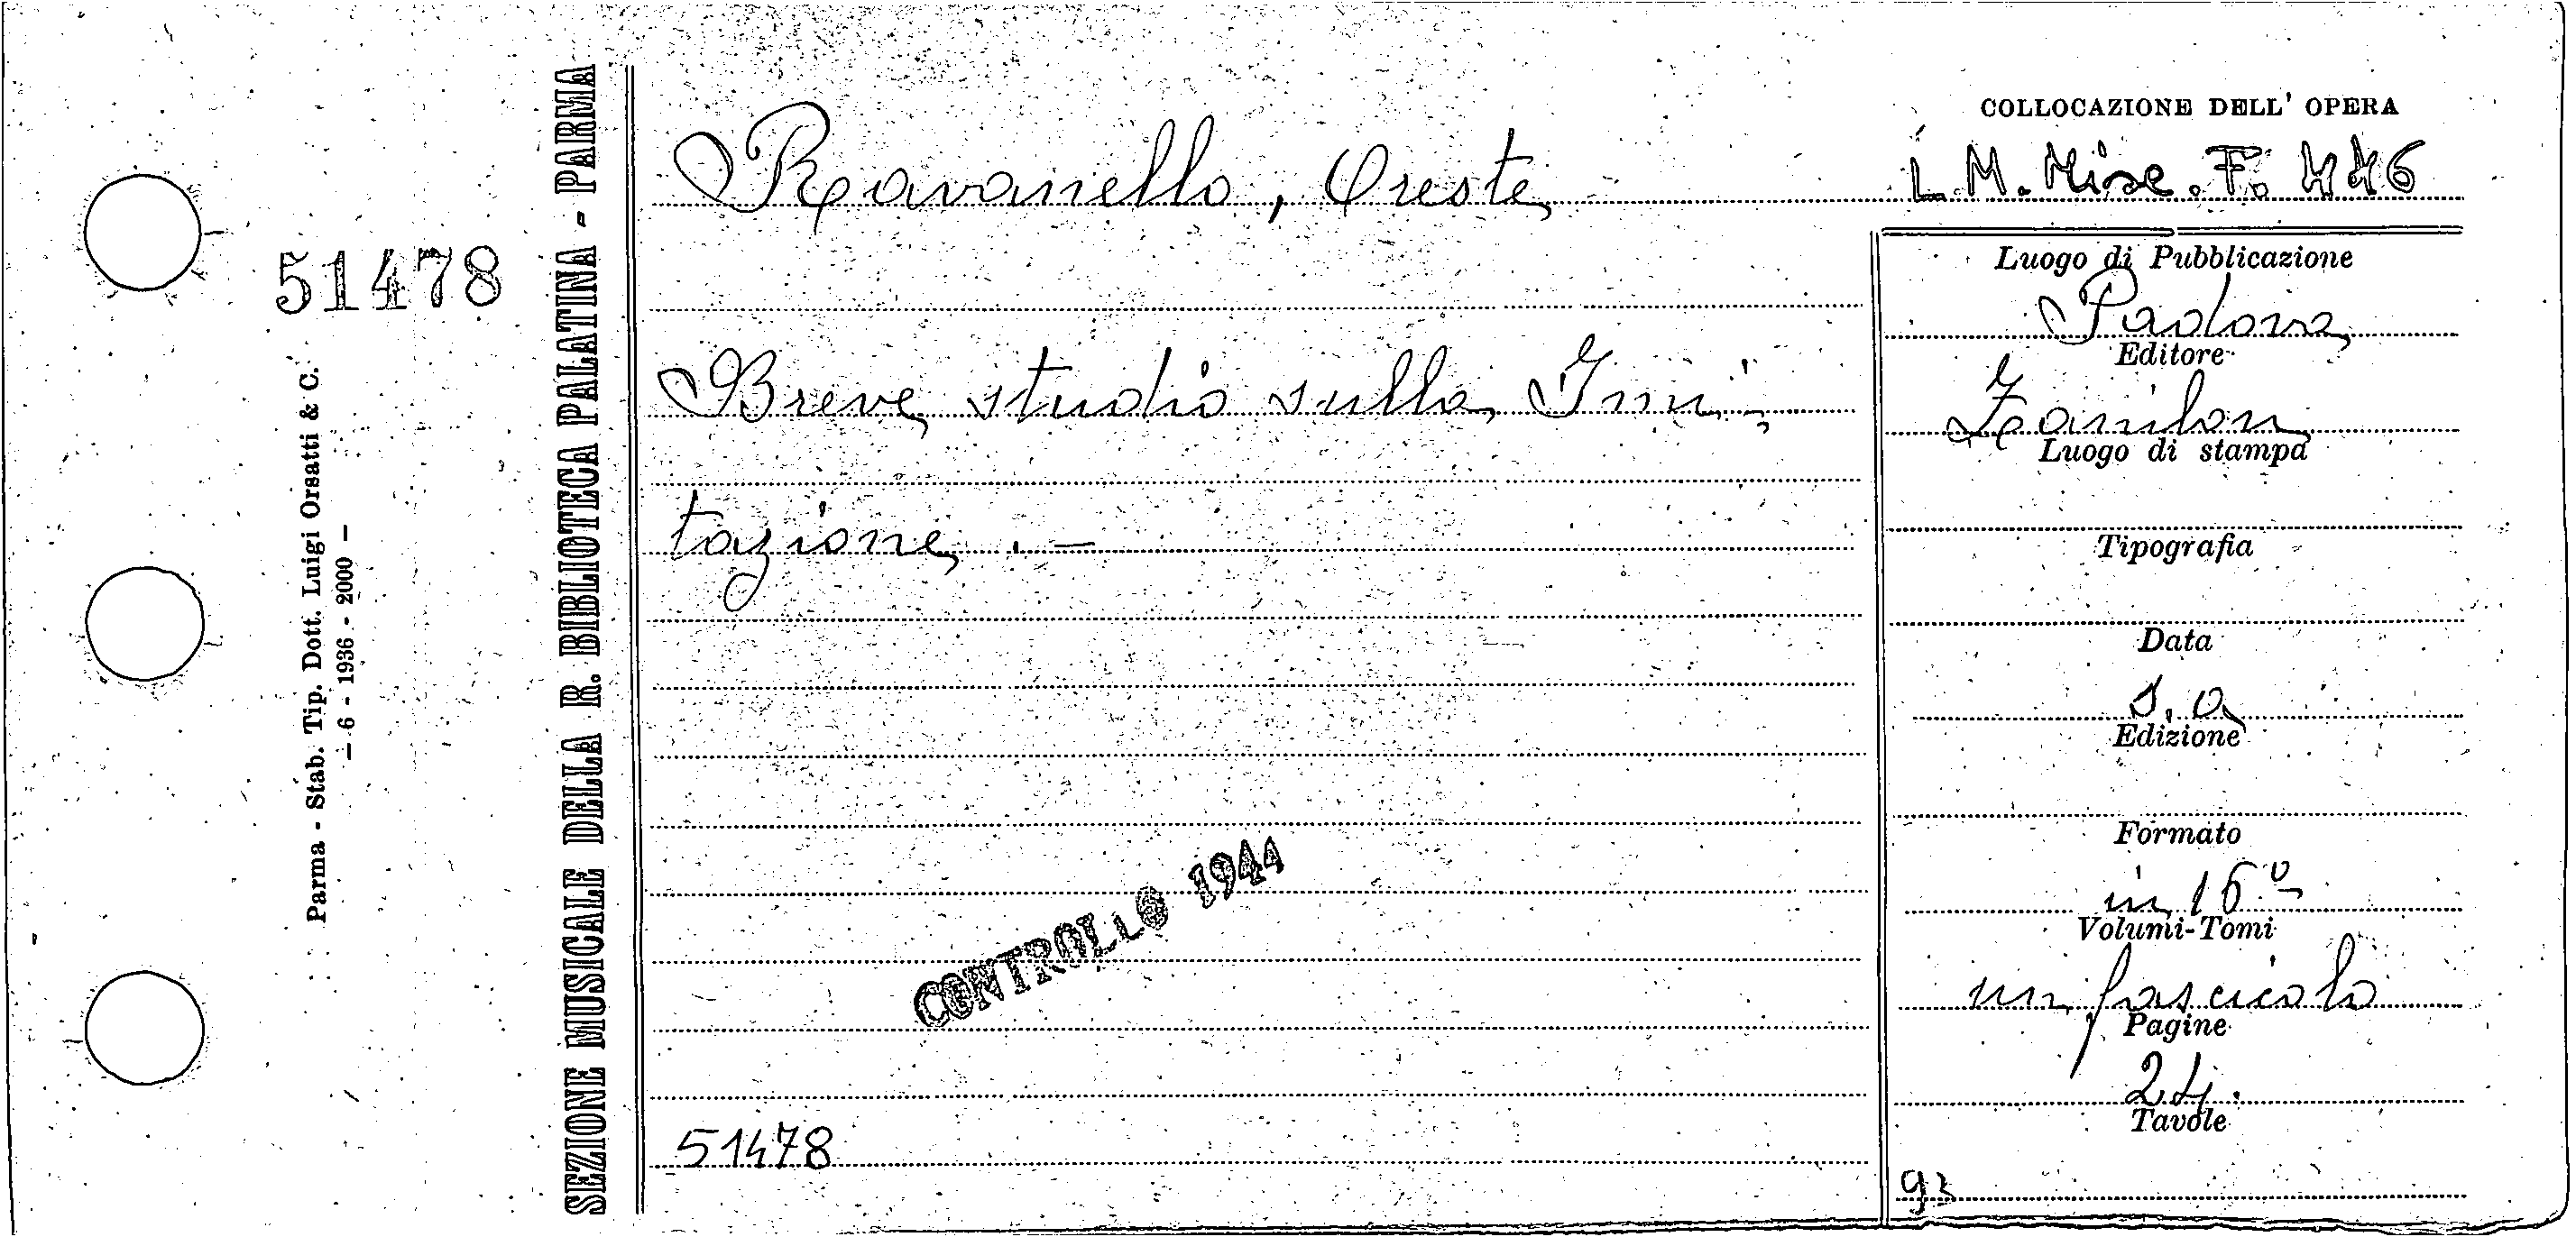 COLLOCAZIONE DELL' OPERA
Ravanello, Oreste
L. M. Misc. F. 446
51478
Parma - Stab. Tip. Dott. Luigi Orsatti & C.
— 6 - 1936 - 2000 —
SEZIONE MUSICALE DELLA R. BIBLIOTECA PALATINA - PARMA
Breve studio sulla Imi-
tazione . —
CONTROLLO 1944
51478
Luogo di Pubblicazione
Padova
Editore
Zanibon
Luogo di stampa
Tipografia
Data
s. a.
Edizione
Formato
in 16º
Volumi-Tomi
un fascicolo
Pagine
24.
Tavole
93